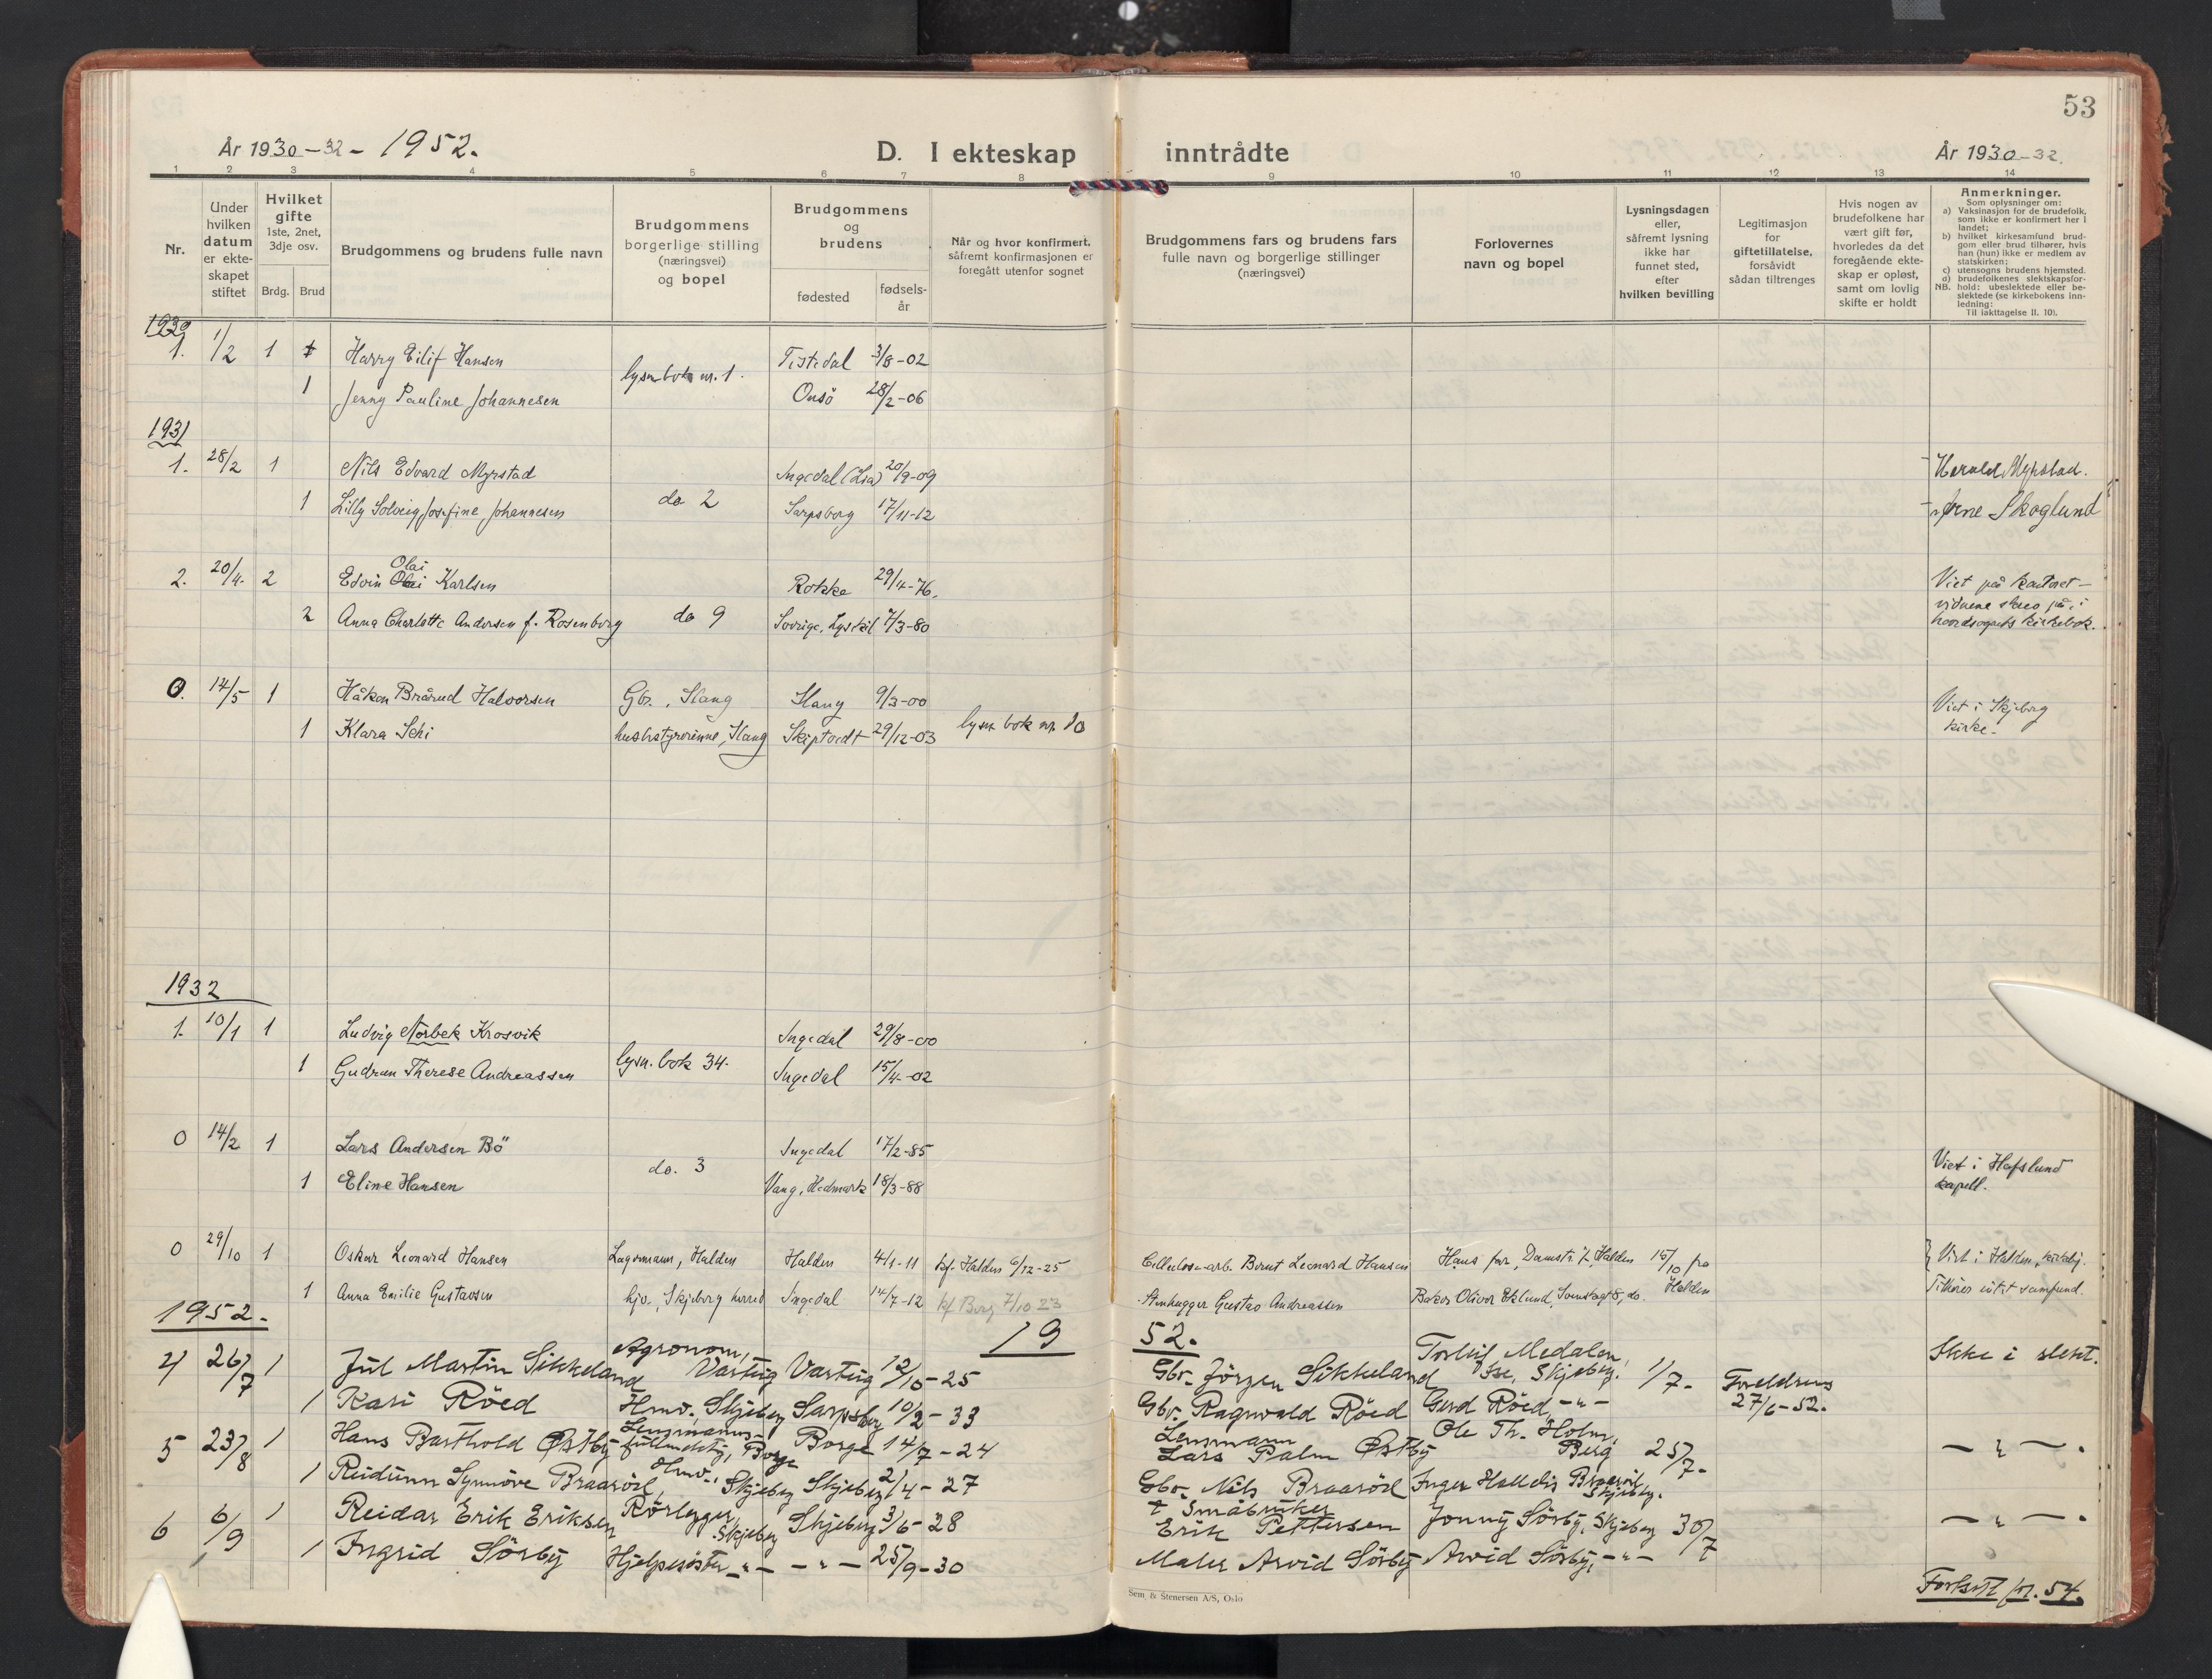 53
År 1930-32 - 1952.
D. I ekteskap inntrådte
År 1930-32.
1 2 3 4 5 6 7 8 9 10 11 12 13 14
Nr.
Under hvilken datum er ekte-skapet stiftet
Hvilket gifte 1ste, 2net, 3dje osv.
Brdg. Brud
Brudgommens og brudens fulle navn
Brudgommens borgerlige stilling (næringsvei) og bopel
Brudgommens og brudens
fødested
fødsels-år
Når og hvor konfirmert, såfremt konfirmasjonen er foregått utenfor sognet
Brudgommens fars og brudens fars fulle navn og borgerlige stillinger (næringsvei)
Forlovernes navn og bopel
Lysningsdagen eller, såfremt lysning ikke har funnet sted, efter hvilken bevilling
Legitimasjon for giftetillatelse, forsåvidt sådan tiltrenges
Hvis nogen av brudefolkene har vært gift før, hvorledes da det foregående ekte-skap er opløst, samt om lovlig skifte er holdt
Anmerkninger.
Som oplysninger om:
a) Vaksinasjon for de brudefolk, som ikke er konfirmert her i landet;
b) hvilket kirkesamfund brud-gom eller brud tilhører, hvis han (hun) ikke er medlem av statskirken;
c) utensogns brudens hjemsted.
d) brudefolkenes slektskapsfor-hold: ubeslektede eller be-slektede (se kirkebokens inn-ledning:
NB.
Til iakttagelse II. 10).
1930
1. 1/2 1 Harry Eilif Hansen Tistedal 3/8-02
lysn bok nr. 1.
1 Jenny Pauline Johannesen Onsö 28/2-06
1931
1. 28/2 1 Nils Edvard Myrstad Ingedal (Lia) 20/9-09 Harald Myrstad.
do 2
1 Lilly Solveig Josefine Johannesen Sarpsborg 17/11-12 Arne Skoglund
Olai
2. 20/4. 2 Edvin Karlsen Rokke 29/4-76. Viet på kontoret-
do 9
2 Anna Charlotte Andersen f. Rosenberg Sverige, Lysekil 7/3-80
hovedsognets kirkebok.
0. 14/5 1 Håkon Brårud Halvorsen Gbr., Stang Stang 9/3-00 Viet i Skjeberg
1 Klara Schi husbestyrerinne, Stang Skiptvedt 29/12-03 lysn bok nr. 10 kirke.
1932
1. 10/1 1 Ludvig Norbek Krosvik Ingedal 29/8-00
lysn. bok 34.
1 Gudrun Therese Andreassen Ingedal 15/4-02
0 14/2 1 Lars Andersen Bö Ingedal 17/2-85 Viet i Hafslund
do. 3
1 Eline Hansen Vang, Hedmark 18/3-88 kapell.
0 29/10 1 Oskar Leonard Hansen Lagermann, Halden Halden 4/1-11 kf. Halden 6/12-25 Cellulose-arb. Bernt Leonard Hansen Hans far, Damstr. 7, Halden 15/10 fra Halden Viet i Halden
1 Anna Emilie Gustavsen hjv., Skjeberg herred Ingedal 14/7-12 kf Berg 7/10 23 Stenhugger Gustav Andreassen Baker Oliver Eklund, do. Tilhører intet samfund.
1952. 19 52.
4 26/7 1 Jul Martin Sikkeland Agronom, Varteig Varteig 12/10-25 Gbr. Jörgen Sikkeland Torleif Medalen, Ise, Skjeberg. 1/7- Foreldrenes 27/6-52. Ikke i slekt.
1 Kari Röed Hmv. Skjeberg Sarpsborg 10/2-33 Gbr. Ragnvald Röed Gerd Röed, -"-
5 23/8 1 Hans Barthold Østby Lensmanns-fullmektig, Borge Borge 14/7-24 Lensmann Lars Palm Østby Ole Th. Holm, Berg 25/7- -"-.
1 Reidunn Synnöve Braaröd, Hmv., Skjeberg Skjeberg 2/4-27 Gbr. Nils Braaröd Inger Halldis Braaröd Skjeberg.
6 6/9 1 Reidar Erik Eriksen Rörlegger, Skjeberg Skjeberg 3/6-28 † Småbruker Erik Pettersen Jonny Sörby, Skjeberg 30/7 -"-.
1 Ingrid Sörby Hjelpesöster -"- -"- 25/9-30 Maler Arvid Sörby Arvid Sörby, -"-
Sem & Stenersen A/S, Oslo
Forts. 54.